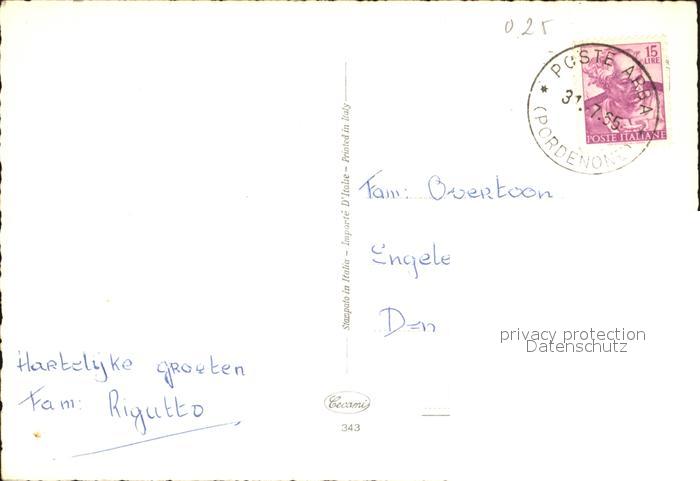 0 25
15
LIRE
POSTE ITALIANE
* POSTE ARBA
31.7.65
(PORDENONE)
Stampato in Italia – Importé D'Italie – Printed in Italy
Fam: Overtoon
Engele
Den
privacy protection
Datenschutz
Hartelijke groeten
Fam: Rigutto
Cecami
343